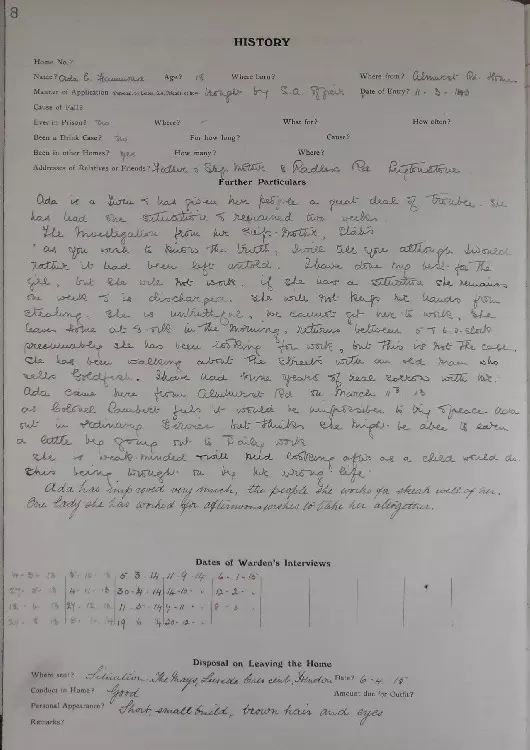 8
HISTORY
Home No.?
Name? Ada E. Age? 18 Where born? Where from? Rd. Home
Manner of Application brought by S.A. Officer Date of Entry? 11 - 3 -
Cause of Fall?
Ever in Prison? No Where? What for? How often?
Been a Drink Case? No For how long? Cause?
Been in other Homes? Yes How many? Where?
Addresses of Relatives or Friends? Father & Step Mother 8 Rd
Further Particulars
Ada is a & has given her people a great deal of trouble. She
has had one situation & remained two weeks.
The Investigation from her Step-Mother, States
"as you wish to know the truth, I will tell you although I would
rather it had been left untold. I have done my best for the
girl, but she will not work. if she has a situation she remains
one week & is discharged. She will not keep her hands from
stealing. She is untruthful, we cannot get her to work, She
leaves home at in the morning, returns between 5 & 6.o.clock
presumably she has been looking for work, but this is not the case.
She has been walking about the streets with an old man who
sells Goldfish. I have had nine years of real sorrow with her.
Ada came here from Rd on March 11th 13
as Colonel Lambert feels it would be impossible to place Ada
out in ordinary Service but thinks she might be able to earn
a little by going out to Daily work
She is weak minded & will need looking after as a child would do.
this being brought on by her wrong life.
Ada has improved very much, the people she works for speak well of her.
One lady she has worked for afternoons wishes to take her altogether.
Dates of Warden's Interviews
5 3 14 11 9 14 6 - 1 - 15
30 - 4 - 14 14 - 10 - " 12 - 2 - "
Disposal on Leaving the Home
Where sent? Situation The Mays, Crescent, Hendon Date? 6 - 4 15
Conduct in Home? Good Amount due for Outfit?
Personal Appearance? Short, small build, brown hair and eyes
Remarks?